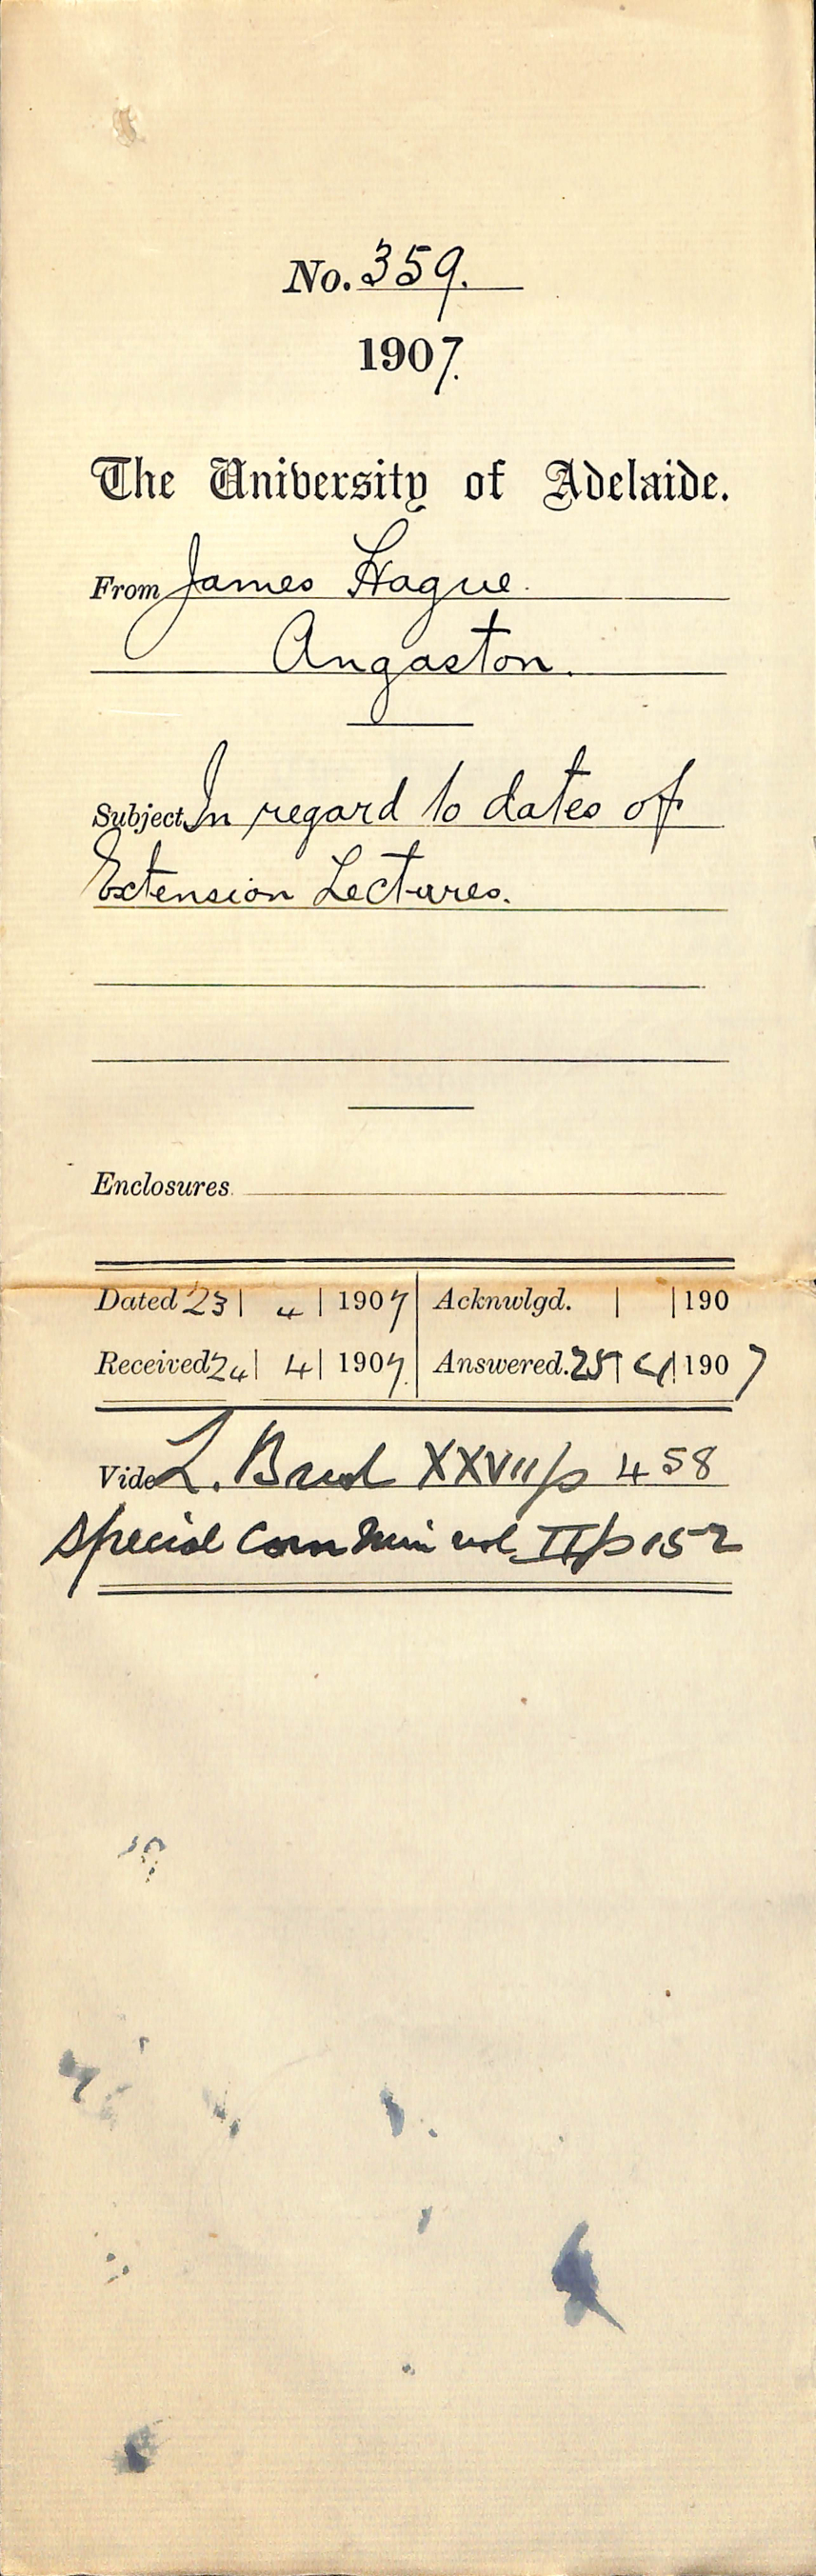 No. 359.
1907.
The University of Adelaide.
From James Hague.
Angaston.
Subject In regard to dates of
Extension Lectures.
Enclosures
Dated 23 | 4 | 1907 | Acknwlgd. | | 190
Received 24 | 4 | 1907. | Answered. 25 | 4 | 1907
Vide L. XXVII/p 458
Special Com Min vol II/p 152